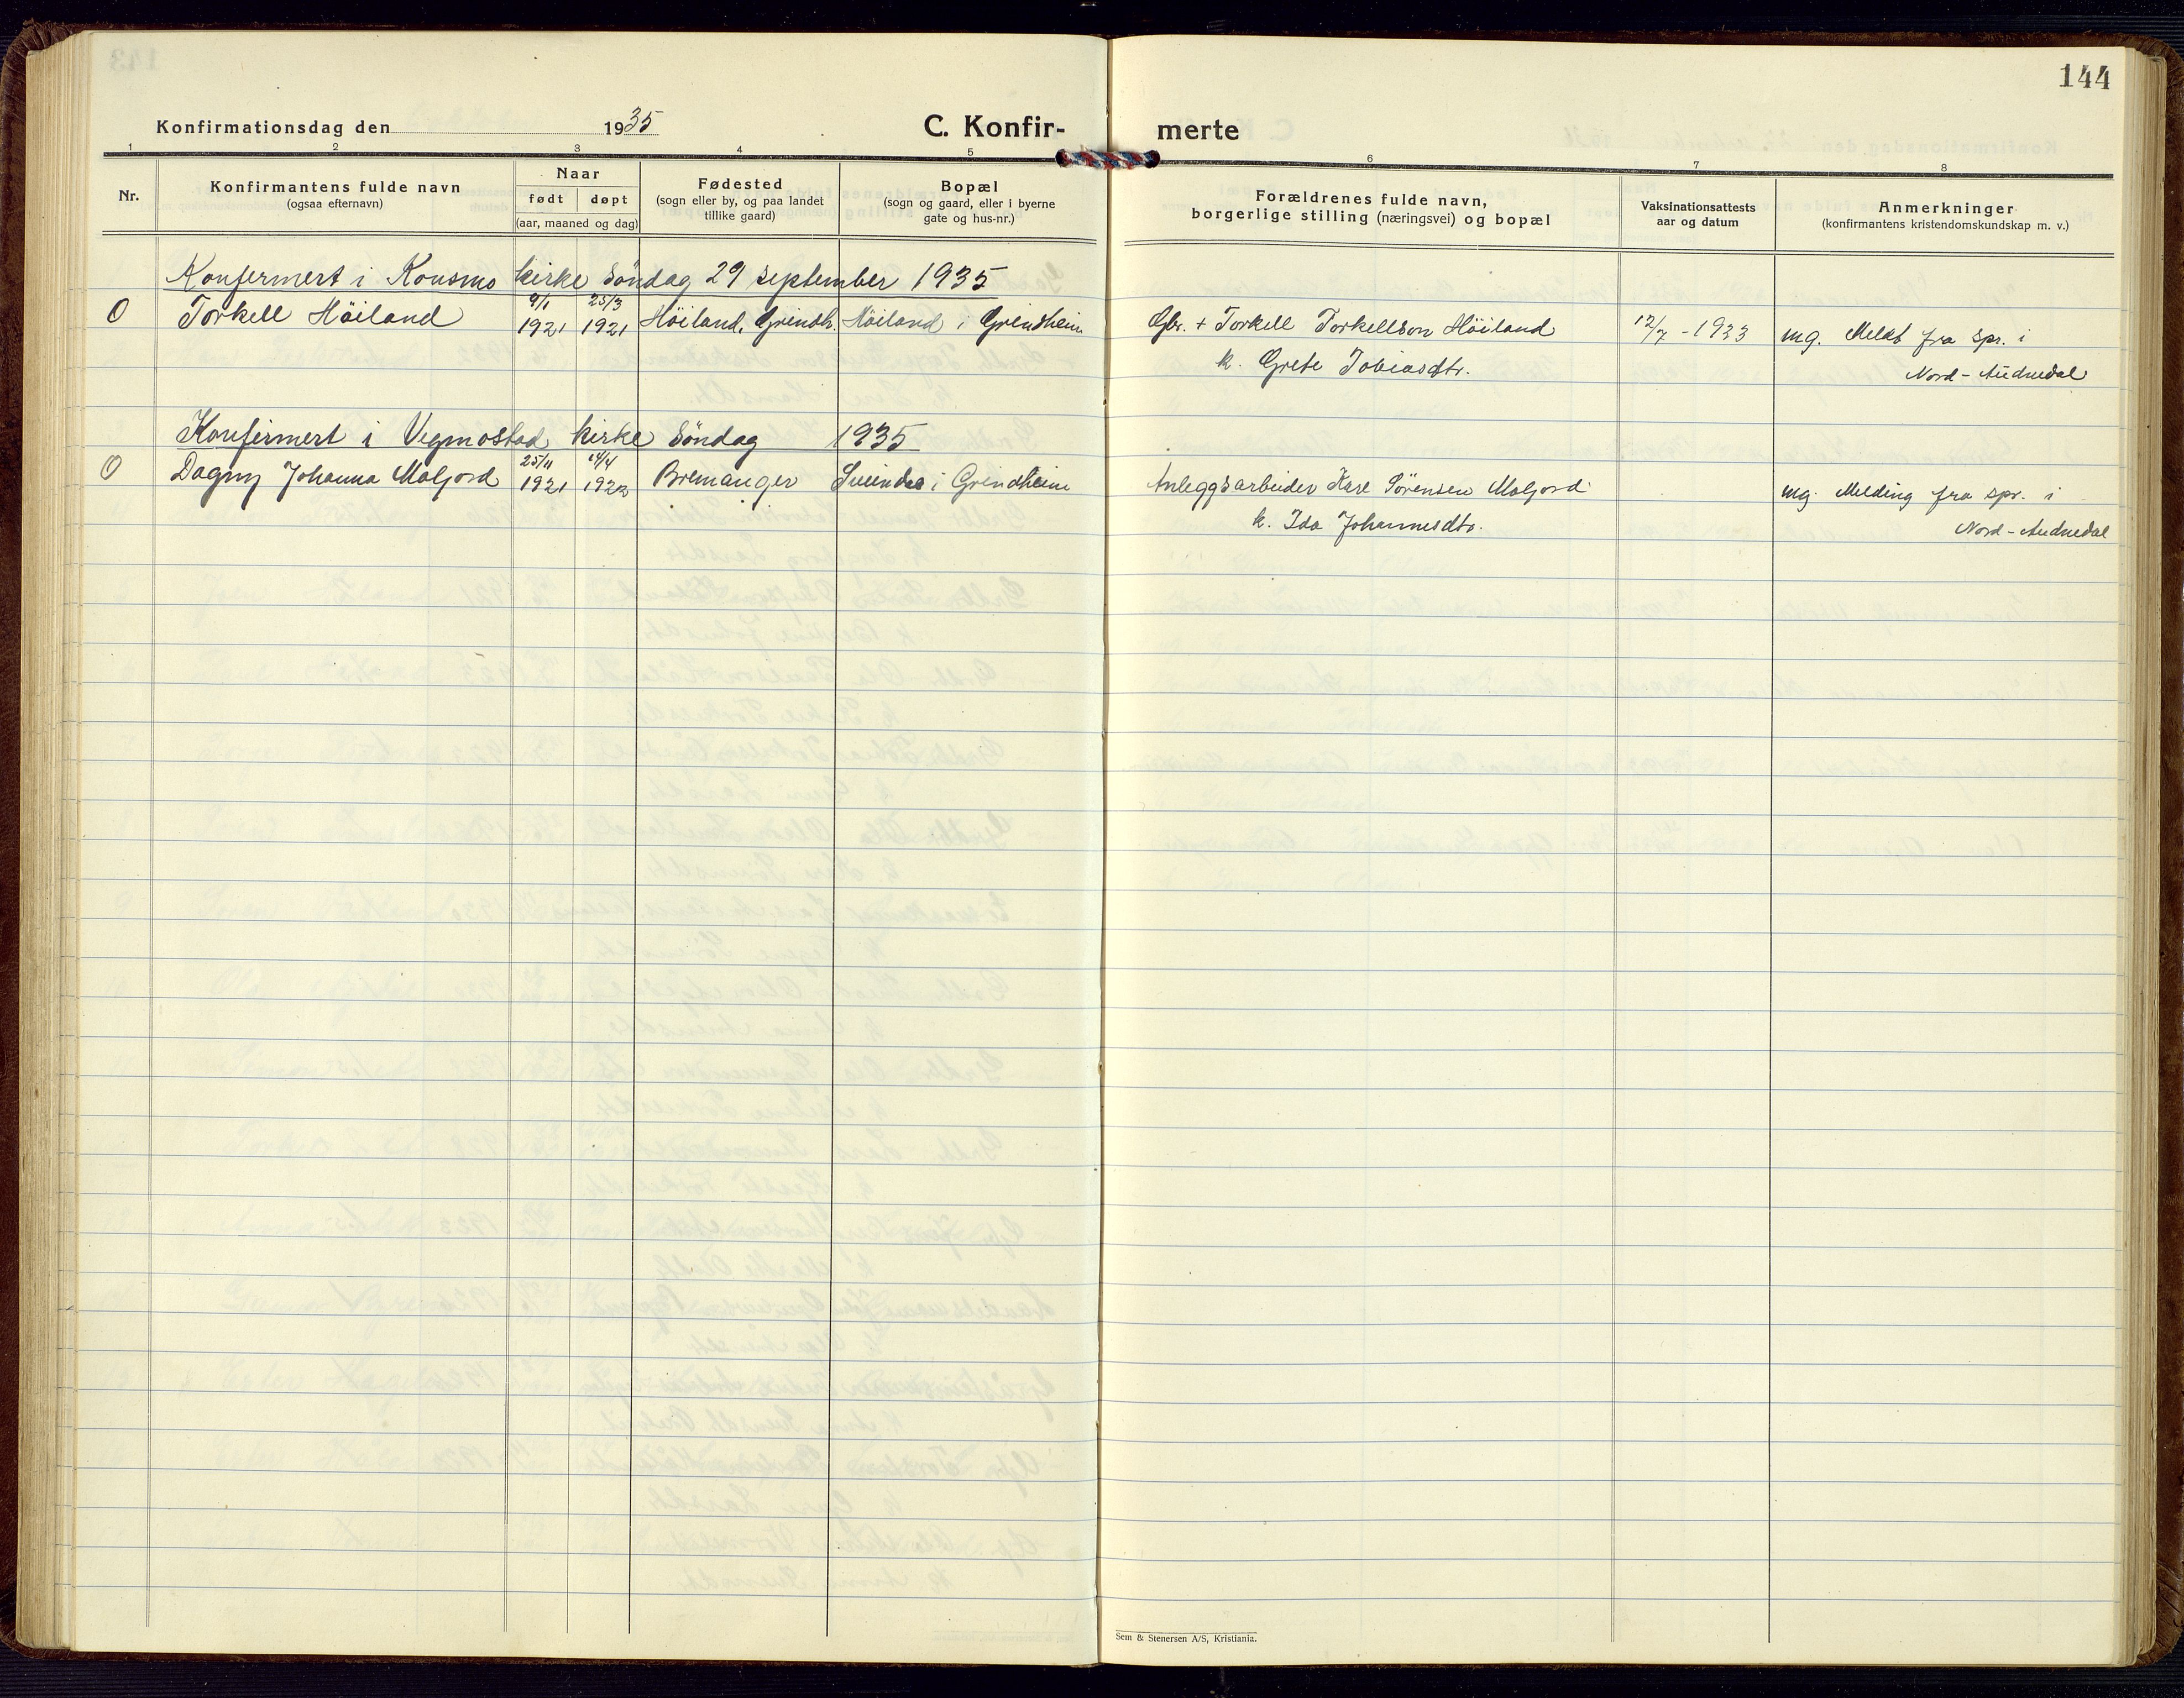 144
Konfirmationsdag den 1935 C. Konfir- merte
1 2 3 4 5 6 7 8
Nr.
Konfirmantens fulde navn
(ogsaa efternavn)
Naar
født døpt
(aar, maaned og dag)
Fødested
(sogn eller by, og paa landet
tillike gaard)
Bopæl
(sogn og gaard, eller i byerne
gate og hus-nr.)
Forældrenes fulde navn,
borgerlige stilling (næringsvei) og bopæl
Vaksinationsattests
aar og datum
Anmerkninger
(konfirmantens kristendomskundskap m. v.)
Konfermert i Konsmo kirke söndag 29 september 1935
0 Torkell Höiland 9/1 1921 25/3 1921 Höiland, Grindh. Höiland i Grindheim Gbr. + Torkell Torkellson Höiland 12/7 - 1933 mg. Meldt fra spr. i
k. Grete Tobiasdtr. Nord-Audnedal
Konfirmert i Vigmostad kirke Söndag 1935
0 Dagny Johanna Maljord 25/11 1921 14/4 1922 Bremanger i Grindheim Anleggsarbeider Karl Sörensen Maljord mg. Melding fra spr. i
k. Ida Johannesdtr. Nord-Audnedal
Sem & Stenersen A/S, Kristiania.